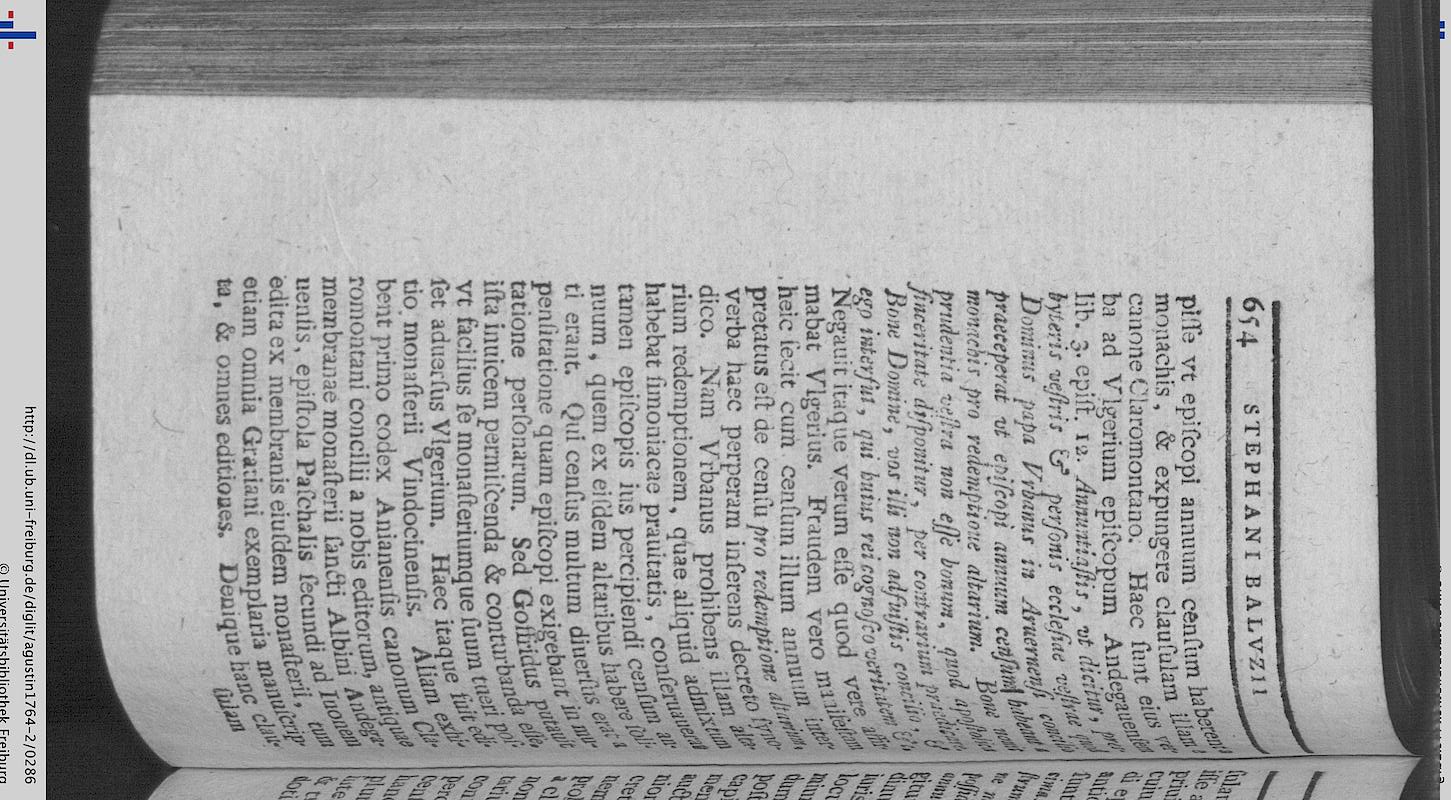 654 STEPHANI BALVZII
piſſe vt epiſcopi annuum cenſum haberent
monachis, & expungere clauſulam illam
canone Claromontano. Haec ſunt eius
ba ad Vlgerium epiſcopum Andegauenſem
lib. 3. epiſt. 12. Annuntiaſtis, vt dicitur,
byteris veſtris & perſonis eccleſiae veſtrae
Dominus papa Vrbanus in Aruernenſi concilio
praeceperat vt epiſcopi annuum cenſum
monachis pro redemptione altarium. Bone
prudentia veſtra non eſſe bonum, quod apoſtolica
ſinceritate diſponitur, per contrarium
Bone Domine, vos illi non adfuiſtis concilio,
ego interfui, qui huius rei cognoſco veritatem.
Negauit itaque verum eſſe quod vere
mabat Vlgerius. Fraudem vero manifeſtam
heic fecit cum cenſum illum annuum inter-
pretatus eſt de cenſu pro redemptione altarium,
verba haec perperam inſerens decreto ſyno-
dico. Nam Vrbanus prohibens illam
rium redemptionem, quae aliquid admixtum
habebat ſimoniacae prauitatis, conſeruauerat
tamen epiſcopis ius percipiendi cenſum an-
nuum, quem ex eiſdem altaribus habere ſoli-
ti erant. Qui cenſus multum diuerſus erat a
penſitatione quam epiſcopi exigebant in mu-
tatione perſonarum. Sed Goffridus putauit
iſta inuicem permiſcenda & conturbanda eſſe,
vt facilius ſe monaſteriumque ſuum tueri poſ-
ſet aduerſus Vlgerium. Haec itaque fuit edi-
tio monaſterii Vindocinenſis. Aliam exhi-
bent primo codex Anianenſis canonum Cla-
romontani concilii a nobis editorum, antiquae
membranae monaſterii ſancti Albini Andega-
uenſis, epiſtola Paſchalis ſecundi ad Iuonem
edita ex membranis eiuſdem monaſterii, tum
etiam omnia Gratiani exemplaria manuſcrip-
ta, & omnes editiones. Denique hanc clau-
ſulam
http://dl.ub.uni-freiburg.de/diglit/agustin1764-2/0286
© Universitätsbibliothek Freiburg